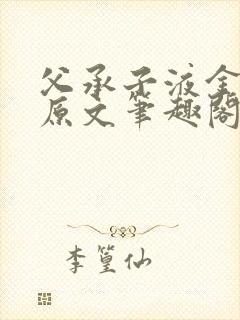 父承子液全
原文笔趣阁
李篁仙